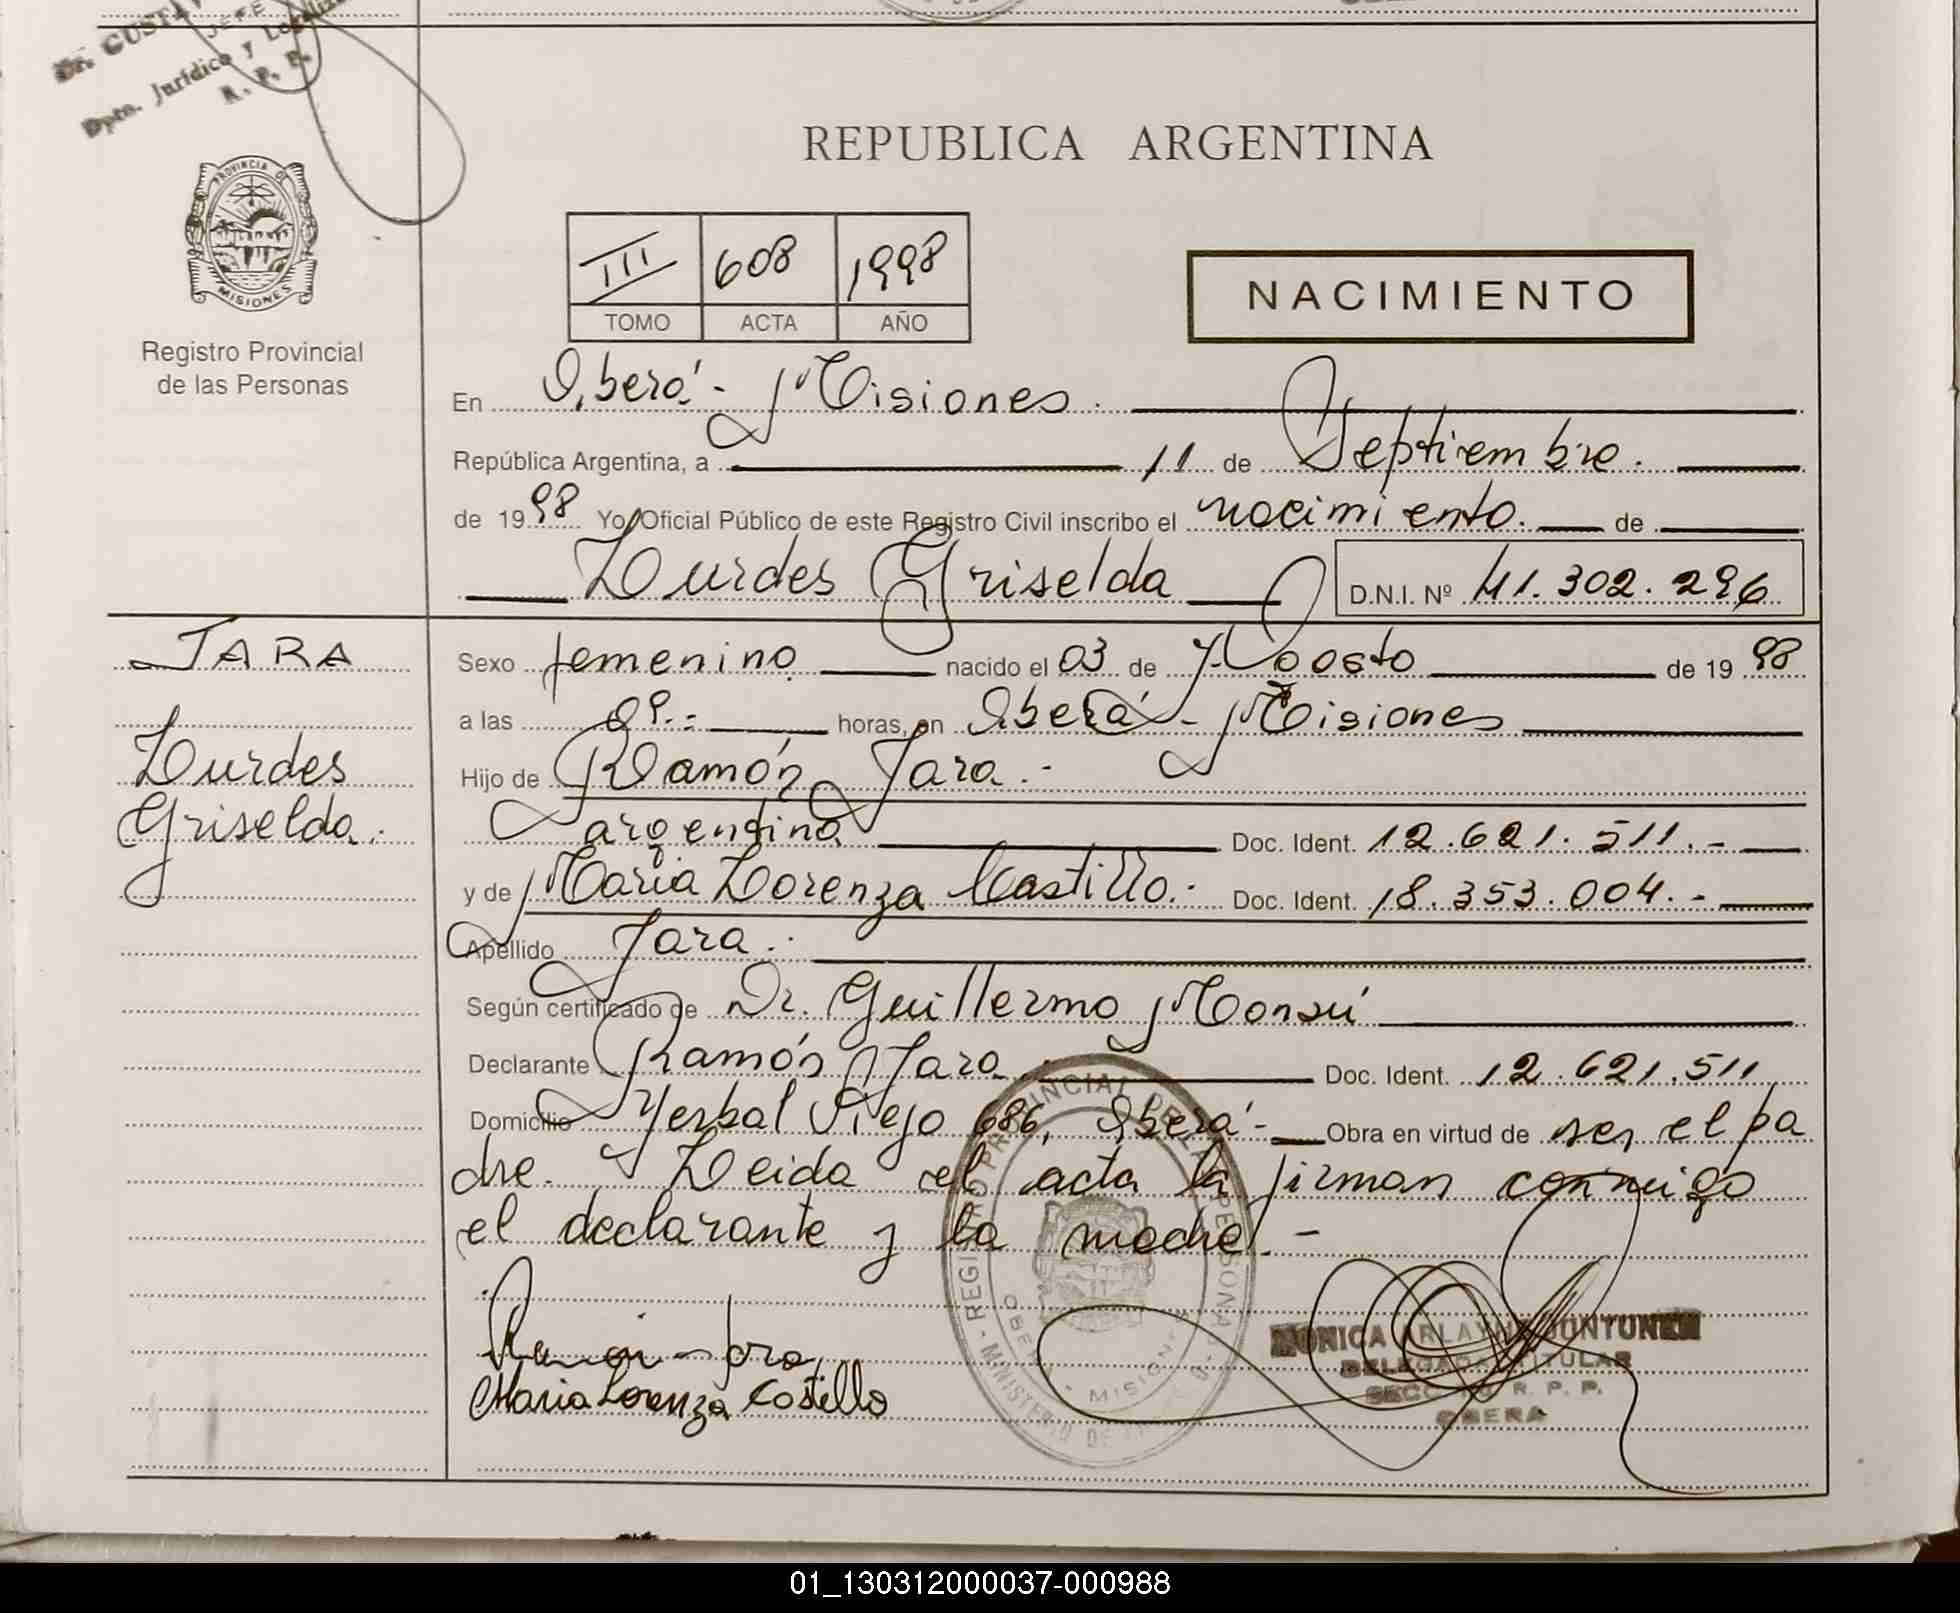 Dr. GUSTA
JEFE
Dpto. Jurídico y
R. P. P.
PROVINCIA DE
MISIONES
Registro Provincial
de las Personas
REPUBLICA ARGENTINA
III 608 1998
TOMO ACTA AÑO
NACIMIENTO
En Oberá - Misiones.
República Argentina, a 11 de Septiembre.
de 1998 Yo, Oficial Público de este Registro Civil inscribo el nacimiento. de
Lurdes Griselda D.N.I. Nº 41.302.296
JARA
Lurdes
Griselda.
Sexo femenino nacido el 03 de Agosto de 1998
a las horas, en Oberá - Misiones
Hijo de Ramón Jara.-
argentina Doc. Ident. 12.621.511.-
y de Maria Lorenza Castillo.- Doc. Ident. 18.353.004.-
Apellido Jara.-
Según certificado de Dr. Guillermo Monsú
Declarante Ramón Jara Doc. Ident. 12.621.511
Domicilio Yerbal Viejo 686, Oberá- Obra en virtud de ser el pa
dre. Leida el acta la firman conmigo
el declarante y la madre.-
Ramon Jara
Maria Lorenza Castillo
REGISTRO PROVINCIAL DE LAS PERSONAS
OBERA - MISIONES
MONICA ARLAYNE JUNTUNEN
DELEGADA TITULAR
R. P. P.
OBERA
01_130312000037-000988